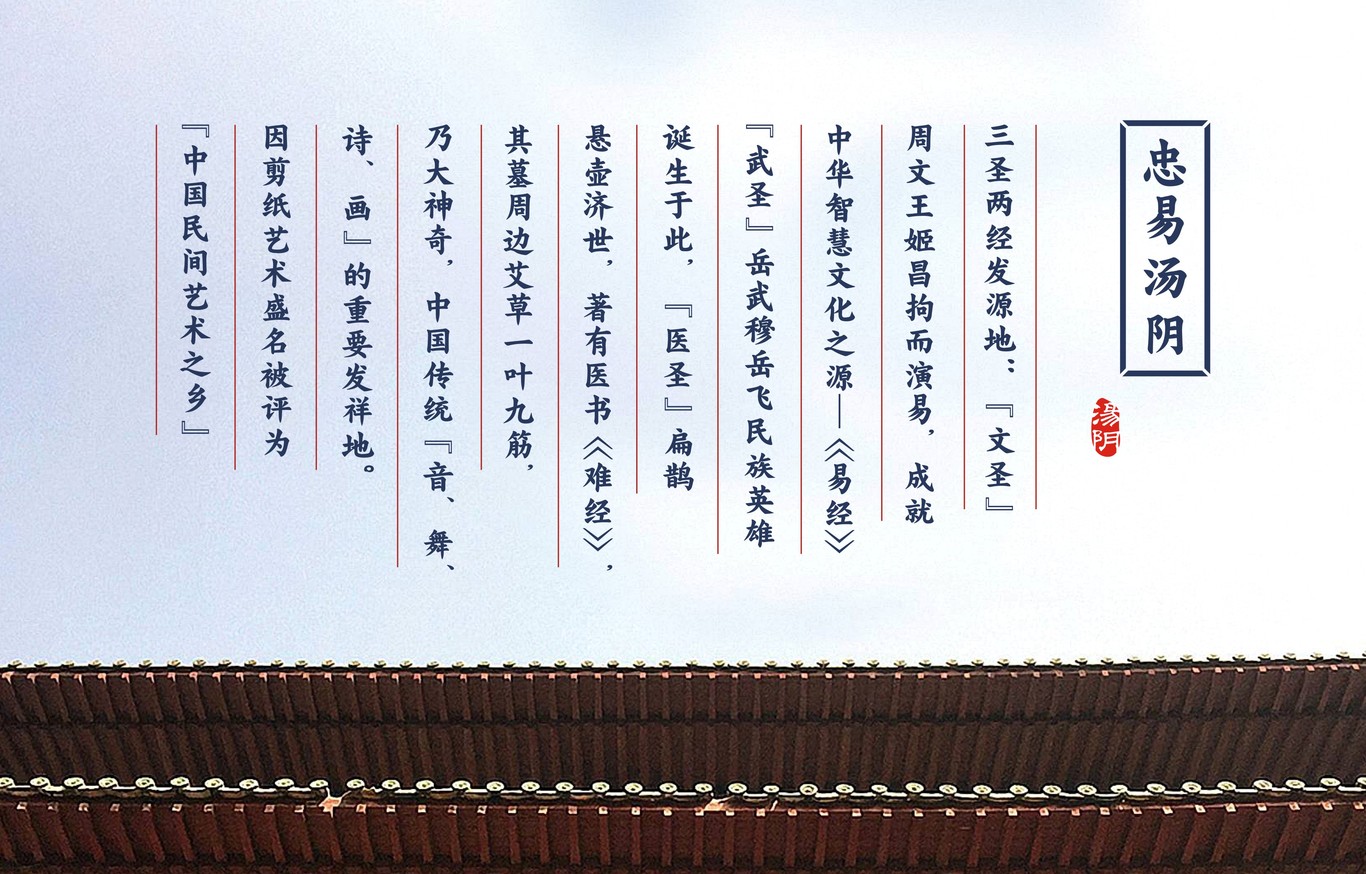 忠易汤阴
湯阴
三圣两经发源地：『文圣』
周文王姬昌拘而演易，成就
中华智慧文化之源—《易经》
『武圣』岳武穆岳飞民族英雄
诞生于此，『医圣』扁鹊
悬壶济世，著有医书《难经》，
其墓周边艾草一叶九筋，
乃大神奇，中国传统『音、舞、
诗、画』的重要发祥地。
因剪纸艺术盛名被评为
『中国民间艺术之乡』